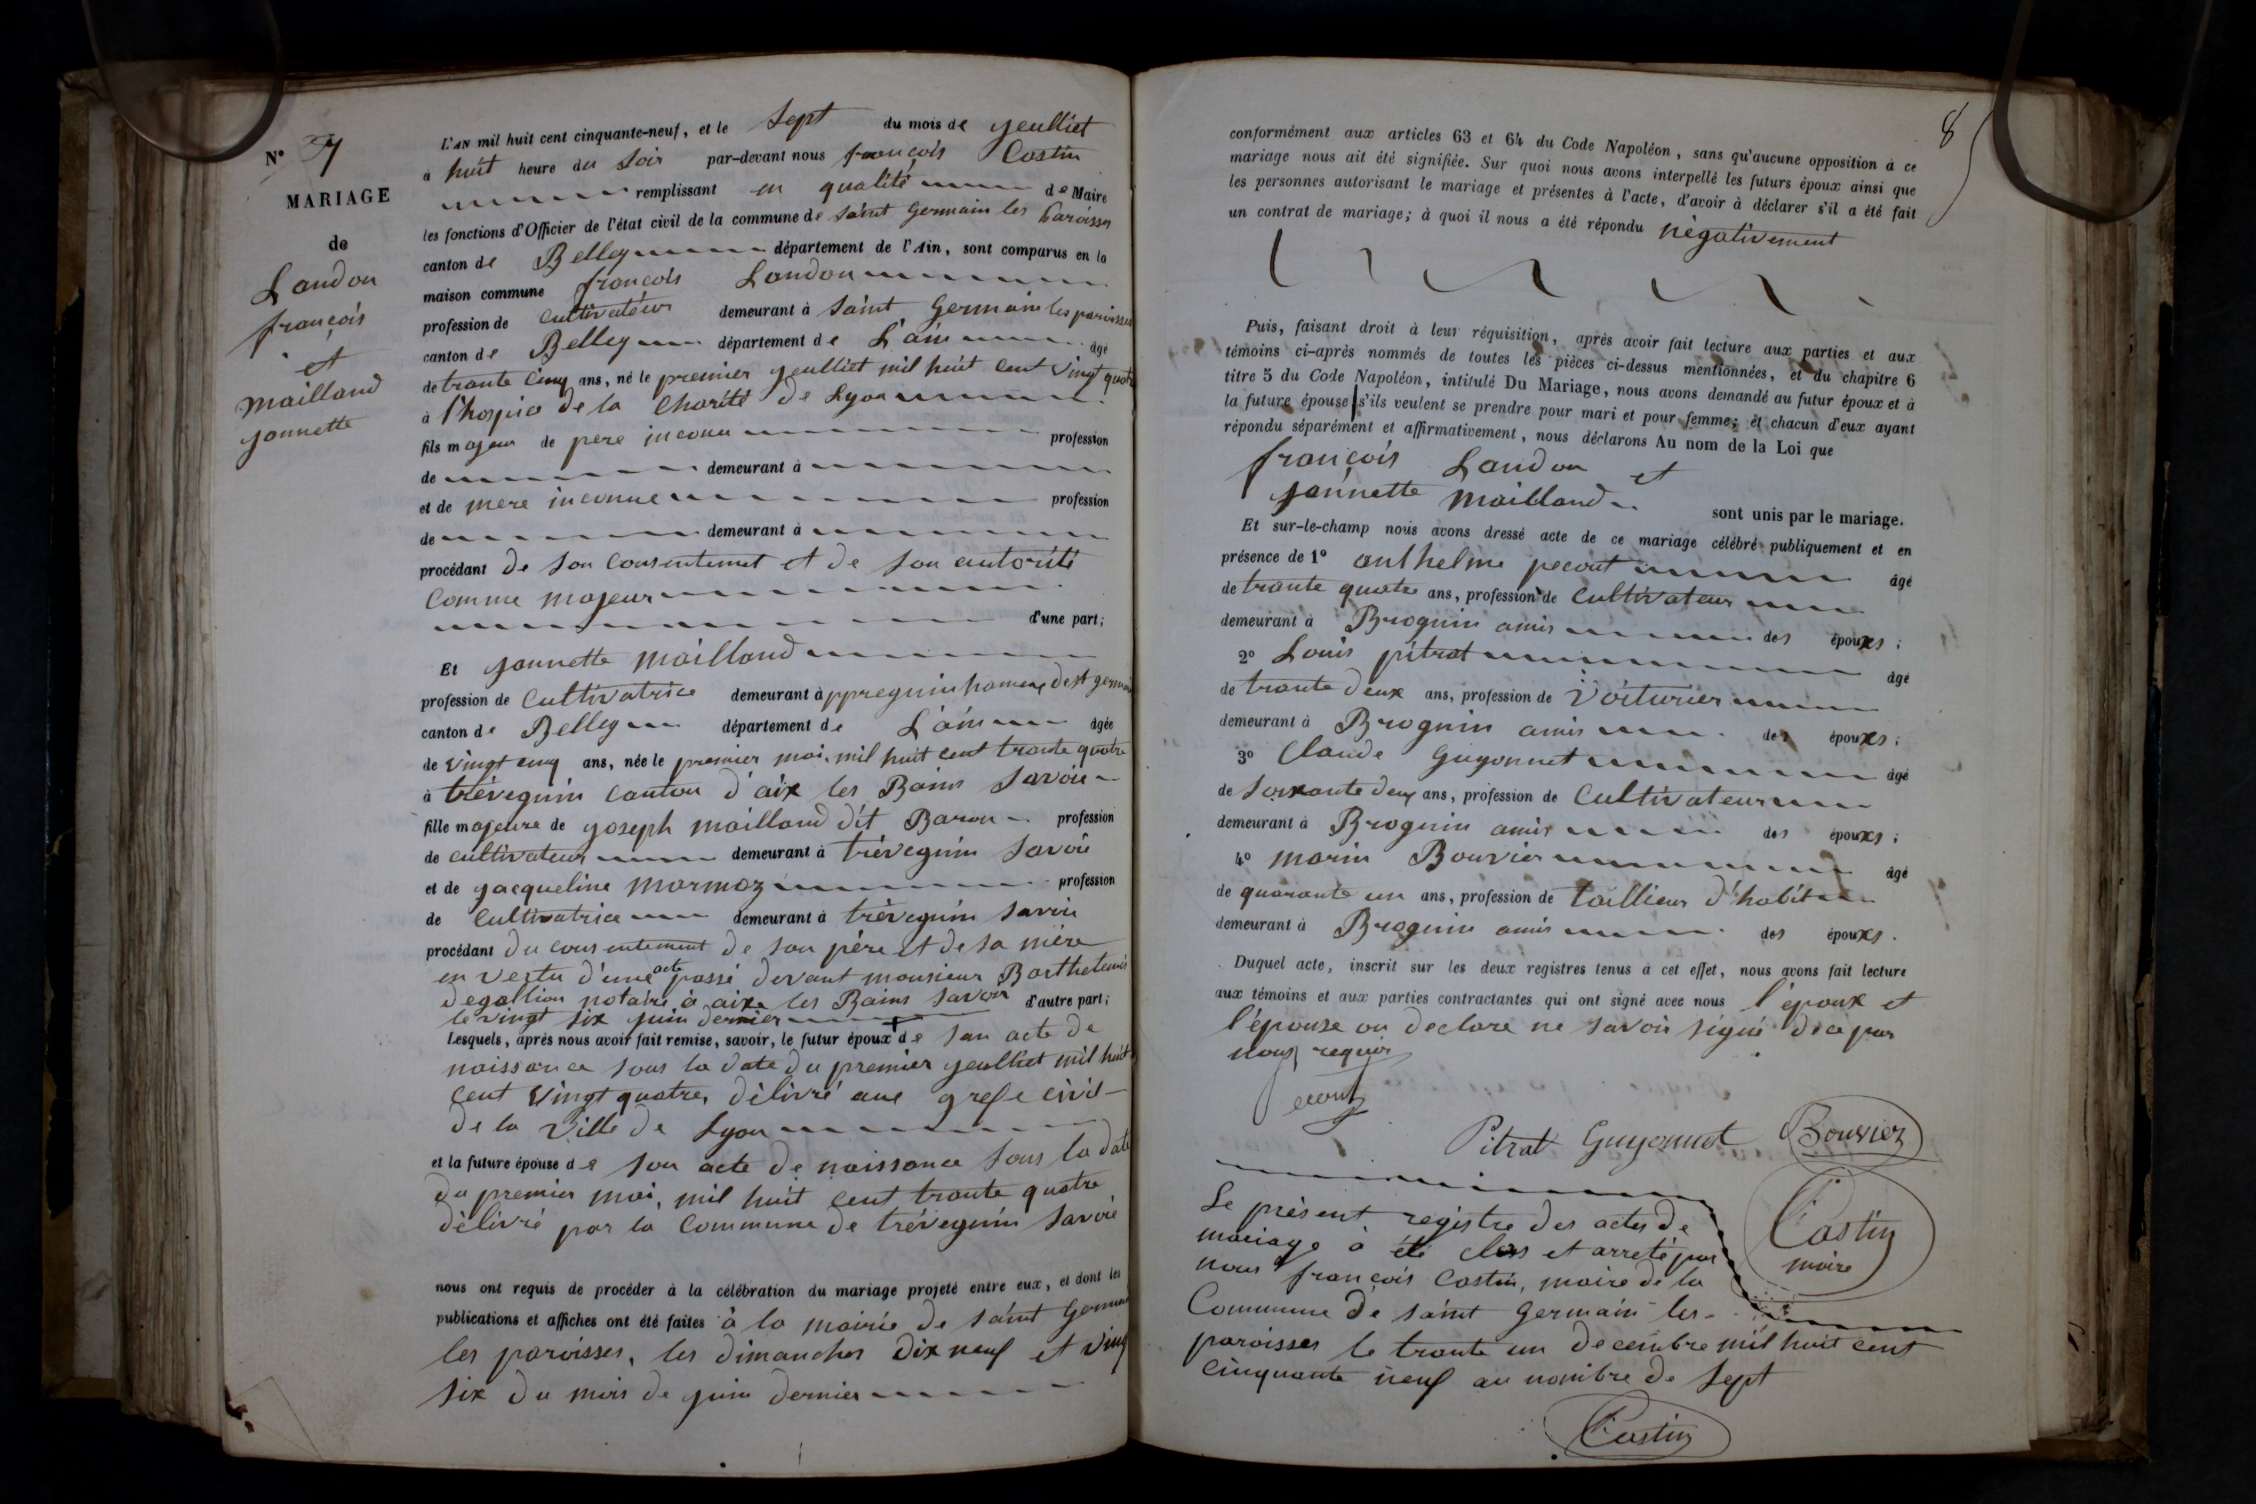 N° 7
MARIAGE
de
Landon
françois
et
Mailland
Jannette
L'AN mil huit cent cinquante-neuf, et le sept du mois de jeulliet
a huit heure du soir par-devant nous françois Castin
remplissant en qualité de Maire
les fonctions d'Officier de l'état civil de la commune de saint Germain les Paroisses
canton de Belley département de l'Ain, sont comparus en la
maison commune françois Landon
profession de cultivateur demeurant à saint Germain les paroisses
canton de Belley département de L'ain âgé
de trante cinq ans, né le premier jeulliet mil huit cent vingt quatre
à l'hospice de la Charité de Lyon
fils majeur de pere inconu profession
de demeurant à
et de mere inconnue profession
de demeurant à
procédant de son consentemet et de son autorité
comme majeur
d'une part;
Et Jannette Mailland
profession de cultivatrice demeurant à ppreguin hameau de st germain
canton de Belley département de L'ain âgée
de vingt cinq ans, née le premier mai mil huit cent trante quatre
à trèveguin canton d'aix les Bains Savoie
fille majeure de Joseph Mailland dit Baron profession
de cultivateur demeurant à trèveguin Savoie
et de Jacqueline Mormoz profession
de cultivatrice demeurant à trèveguin Savoie
procédant du consentement de son père et de sa mère
en vertu d'une acte passé devant monsieur Barthelemis
degallion notaire à aix les Bains Savoie d'autre part;
le vingt six juin dernier
Lesquels, après nous avoir fait remise, savoir, le futur époux de son acte de
naissance sous la date du premier jeulliet mil huit
cent vingt quatre, délivré aue grefe civil
de la ville de Lyon
et la future épouse de son acte de naissance sous la date
du premier mai, mil huit cent trante quatre
délivré par la commune de trèveguin Savoie
nous ont requis de procéder à la célébration du mariage projeté entre eux, et dont les
publications et affiches ont été faites à la mairie de saint Germain
les paroisses, les dimanches dix neuf et vingt
six du mois de juin dernier
8
conformément aux articles 63 et 64 du Code Napoléon, sans qu'aucune opposition à ce
mariage nous ait été signifiée. Sur quoi nous avons interpellé les futurs époux ainsi que
les personnes autorisant le mariage et présentes à l'acte, d'avoir à déclarer s'il a été fait
un contrat de mariage; à quoi il nous a été répondu négativement
Puis, faisant droit à leur réquisition, après avoir fait lecture aux parties et aux
témoins ci-après nommés de toutes les pièces ci-dessus mentionnées, et du chapitre 6
titre 5 du Code Napoléon, intitulé Du Mariage, nous avons demandé au futur époux et à
la future épouse s'ils veulent se prendre pour mari et pour femme; et chacun d'eux ayant
répondu séparément et affirmativement, nous déclarons Au nom de la Loi que
françois Landon et
Jannette Mailland
sont unis par le mariage.
Et sur-le-champ nous avons dressé acte de ce mariage célébré publiquement et en
présence de 1° anthelme pecout âgé
de trante quatre ans, profession de cultivateur
demeurant à Brognin amis des épouxs;
2° Louis pitrat âgé
de trante deux ans, profession de voiturier
demeurant à Brognin amis des épouxs;
3° Claude Guyonnet âgé
de soixante deux ans, profession de cultivateur
demeurant à Brognin amis des épouxs;
4° Marin Bouvier âgé
de quarante un ans, profession de tallieur d'habit
demeurant à Brognin amis des épouxs.
Duquel acte, inscrit sur les deux registres tenus à cet effet, nous avons fait lecture
aux témoins et aux parties contractantes qui ont signé avec nous l'époux et
l'épouse on declare ne savoir signé de ce par
nous requis
Pecout
Pitrat Guyonnet Bouvier
Castin
maire
Le présent registre des actes de
mariage à été clos et arreté par
nous françois Castin, maire de la
Commune de saint Germain les
paroisses le trante un decembre mil huit cent
cinquante neuf au nombre de sept
Castin